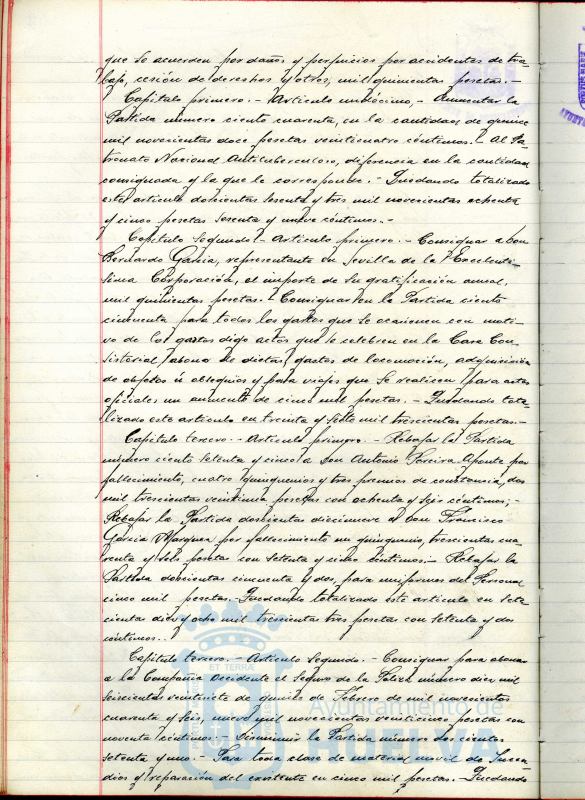 que se acuerden por daños y perjuicios por accidentes de tra-
bajo, cesión de derechos y otros, mil quinientas pesetas.-
Capítulo primero.- Artículo undécimo.- Aumentar la
Partida número ciento cuarenta, en la cantidad de quince
mil novecientas doce pesetas veinticuatro céntimos.- Al Pa-
tronato Nacional Antituberculoso, diferencia en la cantidad
consignada y la que le corresponde.- Quedando totalizado
este artículo doscientas sesenta y tres mil novecientas ochenta
y cinco pesetas sesenta y nueve céntimos.-
Capítulo Segundo.- Artículo primero.- Consignar a Don
Bernardo García, representante en Sevilla de la Excelentí-
sima Corporación, el importe de su gratificación anual,
mil quinientas pesetas.- Consignar en la Partida ciento
cincuenta para todos los gastos que se ocasionen con moti-
vo de los gastos digo actos que se celebren en la Casa Con-
sistorial, abono de dietas, gastos de locomoción, adquisición
de objetos u obsequios y para viajes que se realicen para actos
oficiales un aumento de cinco mil pesetas.- Quedando tota-
lizado este artículo en treinta y siete mil trescientas pesetas.-
Capítulo tercero.- Artículo primero.- Rebajar la Partida
número ciento setenta y cinco a Don Antonio Pereira Aponte por
fallecimiento, cuatro quinquenios y tres premios de constancia, dos
mil trescientas veintiuna pesetas con ochenta y seis céntimos;-
Rebajar la Partida doscientas diecinueve a Don Francisco
García Márquez por fallecimiento un quinquenio, trescientas cua-
renta y seis pesetas con setenta y cinco céntimos.- Rebajar la
Partida doscientas cincuenta y dos, para uniformes del Personal
cinco mil pesetas.- Quedando totalizado este artículo en sete-
cientas diez y ocho mil trescientas tres pesetas con setenta y dos
céntimos.-
Capítulo tercero.- Artículo Segundo.- Consignar para abonar
a la Compañía Occidente el Seguro de la Póliza número diez mil
seiscientas veintisiete de quince de Febrero de mil novecientos
cuarenta y seis, nueve mil novecientas veinticinco pesetas con
noventa céntimos.- Disminuir la Partida número doscientas
setenta y uno.- Para toda clase de material movil de Incen-
dios y reparación del existente en cinco mil pesetas.- Quedando
ET TERRA
Ayuntamiento de
HUELVA